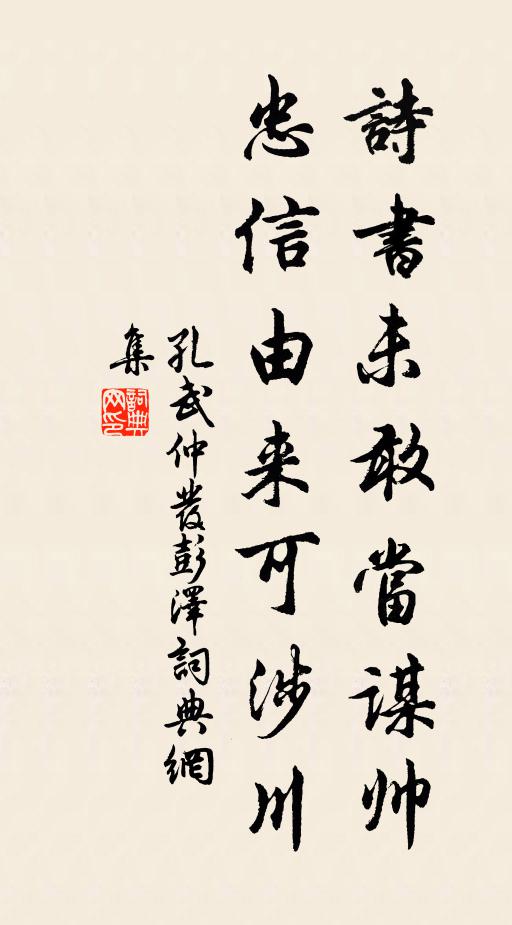 詩書未敢當謀帅
忠信由来可涉川
孔武仲發彭澤詞典網
集
詞典
网印